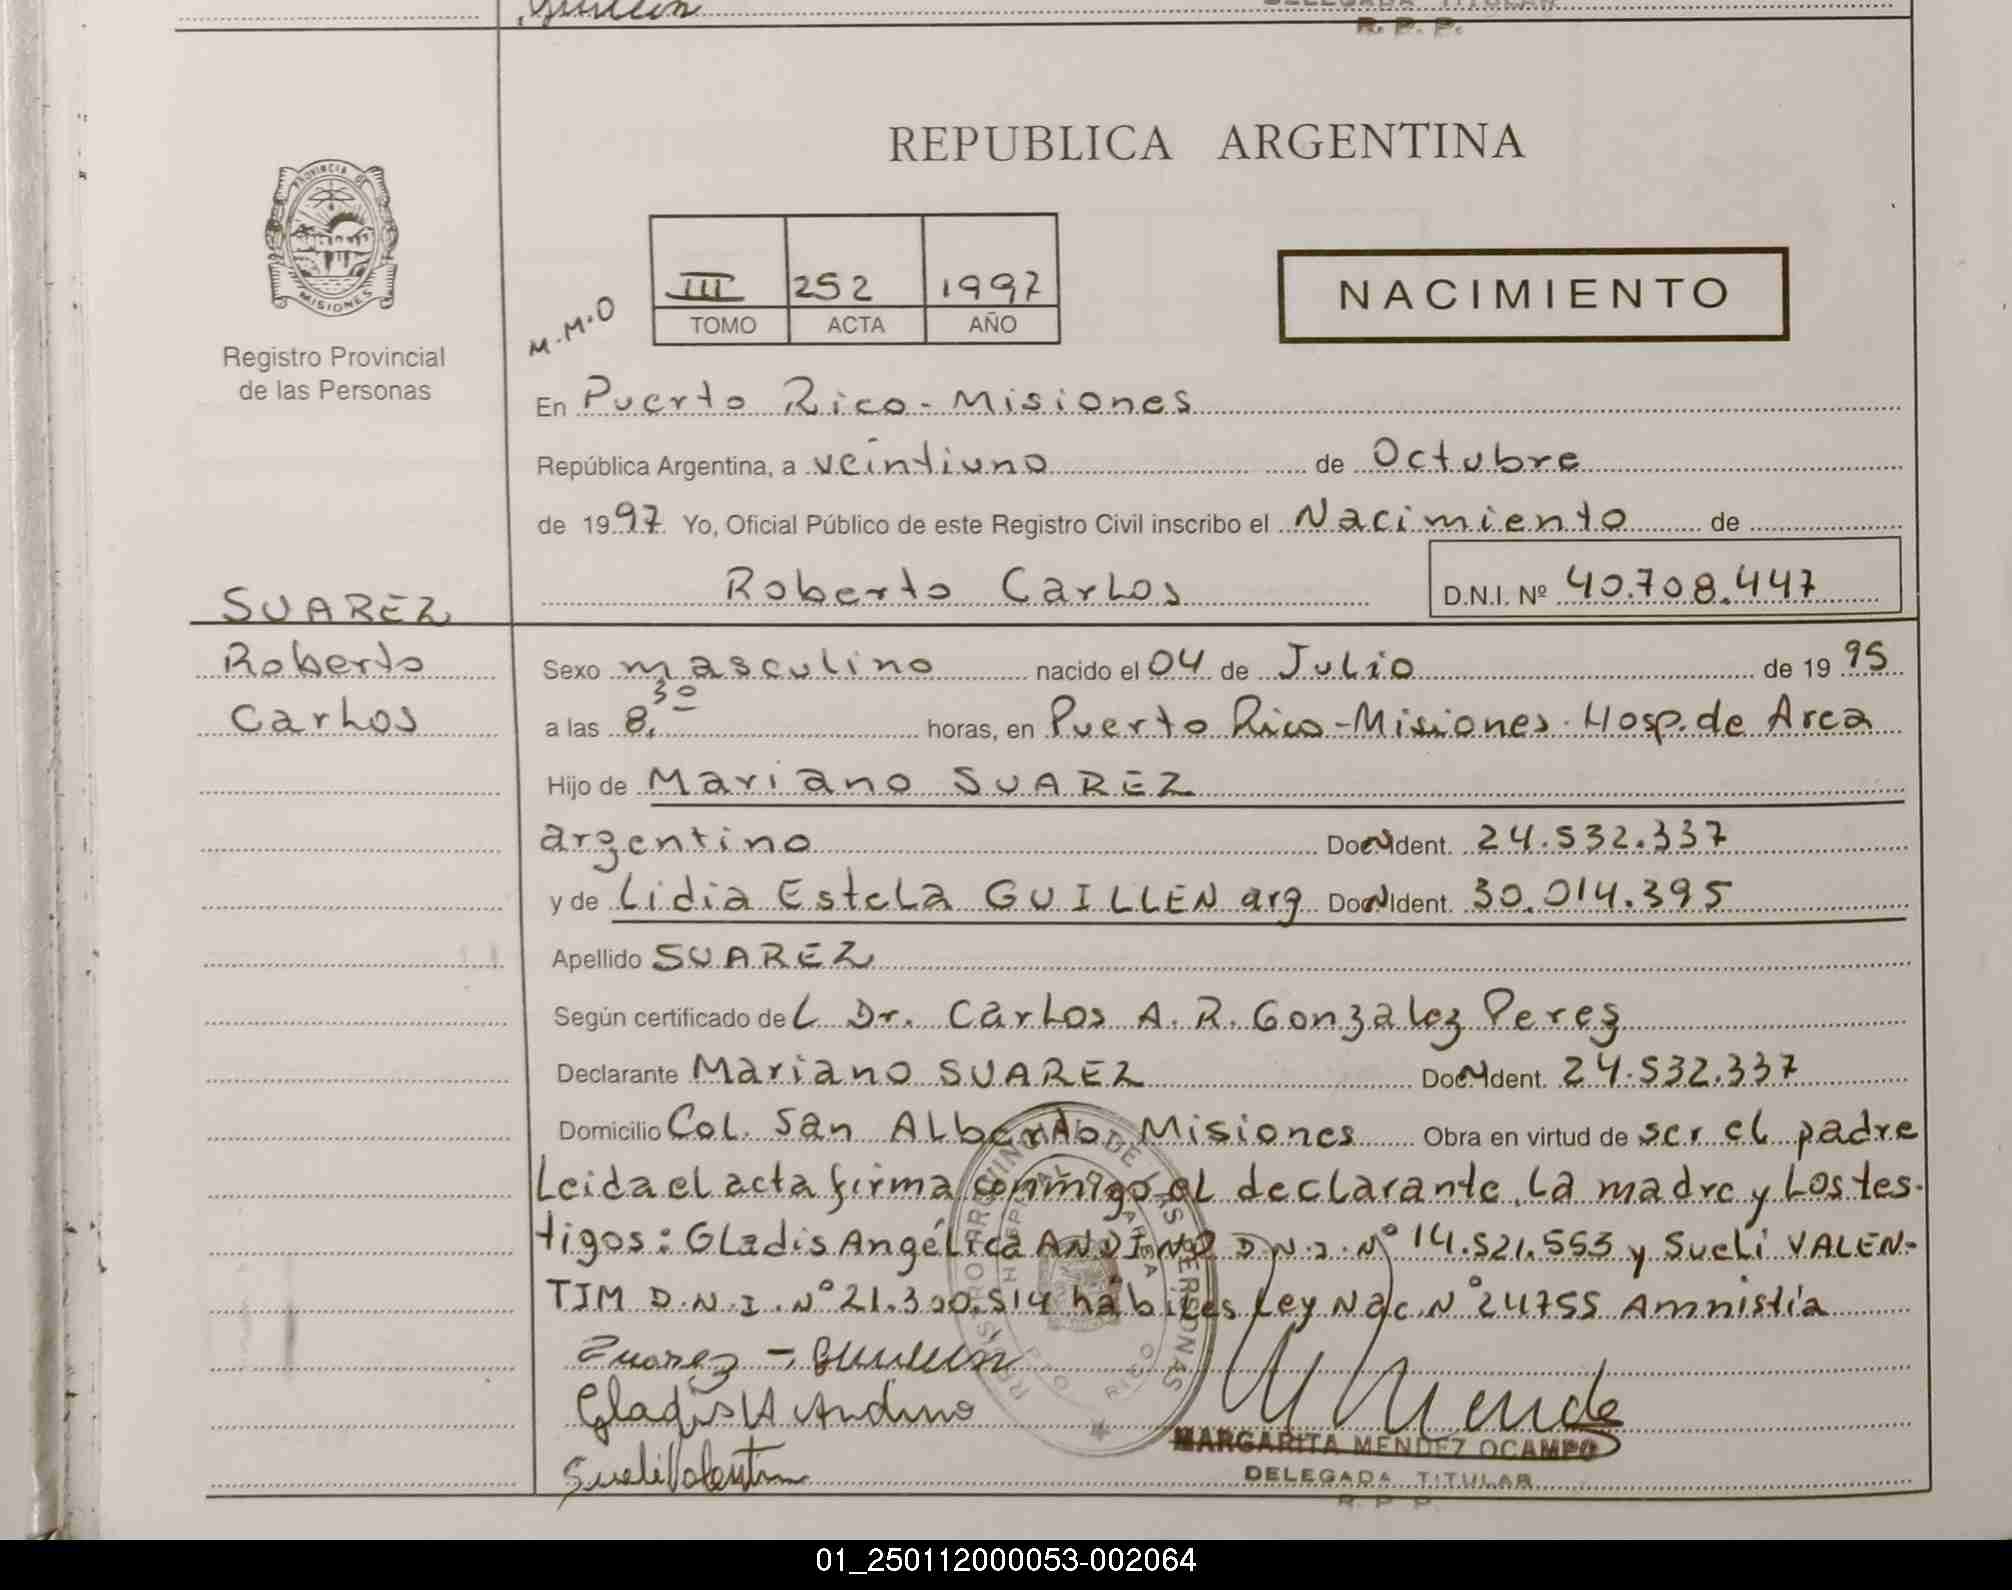 Guillen
DELEGADA TITULAR
R. P. P.
REPUBLICA ARGENTINA
PROVINCIA DE
MISIONES
Registro Provincial
de las Personas
M.M.O
III 252 1997
TOMO ACTA AÑO
NACIMIENTO
En Puerto Rico - Misiones
República Argentina, a veintiuno de Octubre
de 1997. Yo, Oficial Público de este Registro Civil inscribo el Nacimiento de
Roberto Carlos D.N.I. Nº 40.708.447
SUAREZ
Roberto
Carlos
Sexo masculino nacido el 04 de Julio de 1995
a las 8,30 horas, en Puerto Rico - Misiones. Hosp. de Area
Hijo de Mariano SUAREZ
argentino Doc N Ident. 24.532.337
y de Lidia Estela GUILLEN arg Doc N Ident. 30.014.395
Apellido SUAREZ
Según certificado del Dr. Carlos A. R. Gonzalez Perez
Declarante Mariano SUAREZ Doc N Ident. 24.532.337
Domicilio Col. San Alberto Misiones Obra en virtud de ser el padre
Leida el acta firma conmigo el declarante, la madre y los tes-
tigos: Gladis Angélica ANDINO D.N.I. Nº 14.521.553 y Sueli VALEN-
TIM D.N.I. Nº 21.300.514 hábiles Ley Nac. Nº 24755 Amnistía
Zuarez - Guillen
Gladis A Andino
Sueli Valentim
REGISTRO PROVINCIAL DE LAS PERSONAS
HOSPITAL DE AREA
PTO RICO
M Mende
MARGARITA MENDEZ OCAMPO
DELEGADA TITULAR
R. P. P.
01_250112000053-002064